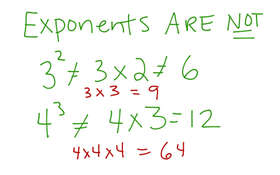 Exponents ARE NOT
3² ≠ 3 × 2 ≠ 6
3 × 3 = 9
4³ ≠ 4 × 3 = 12
4 × 4 × 4 = 64